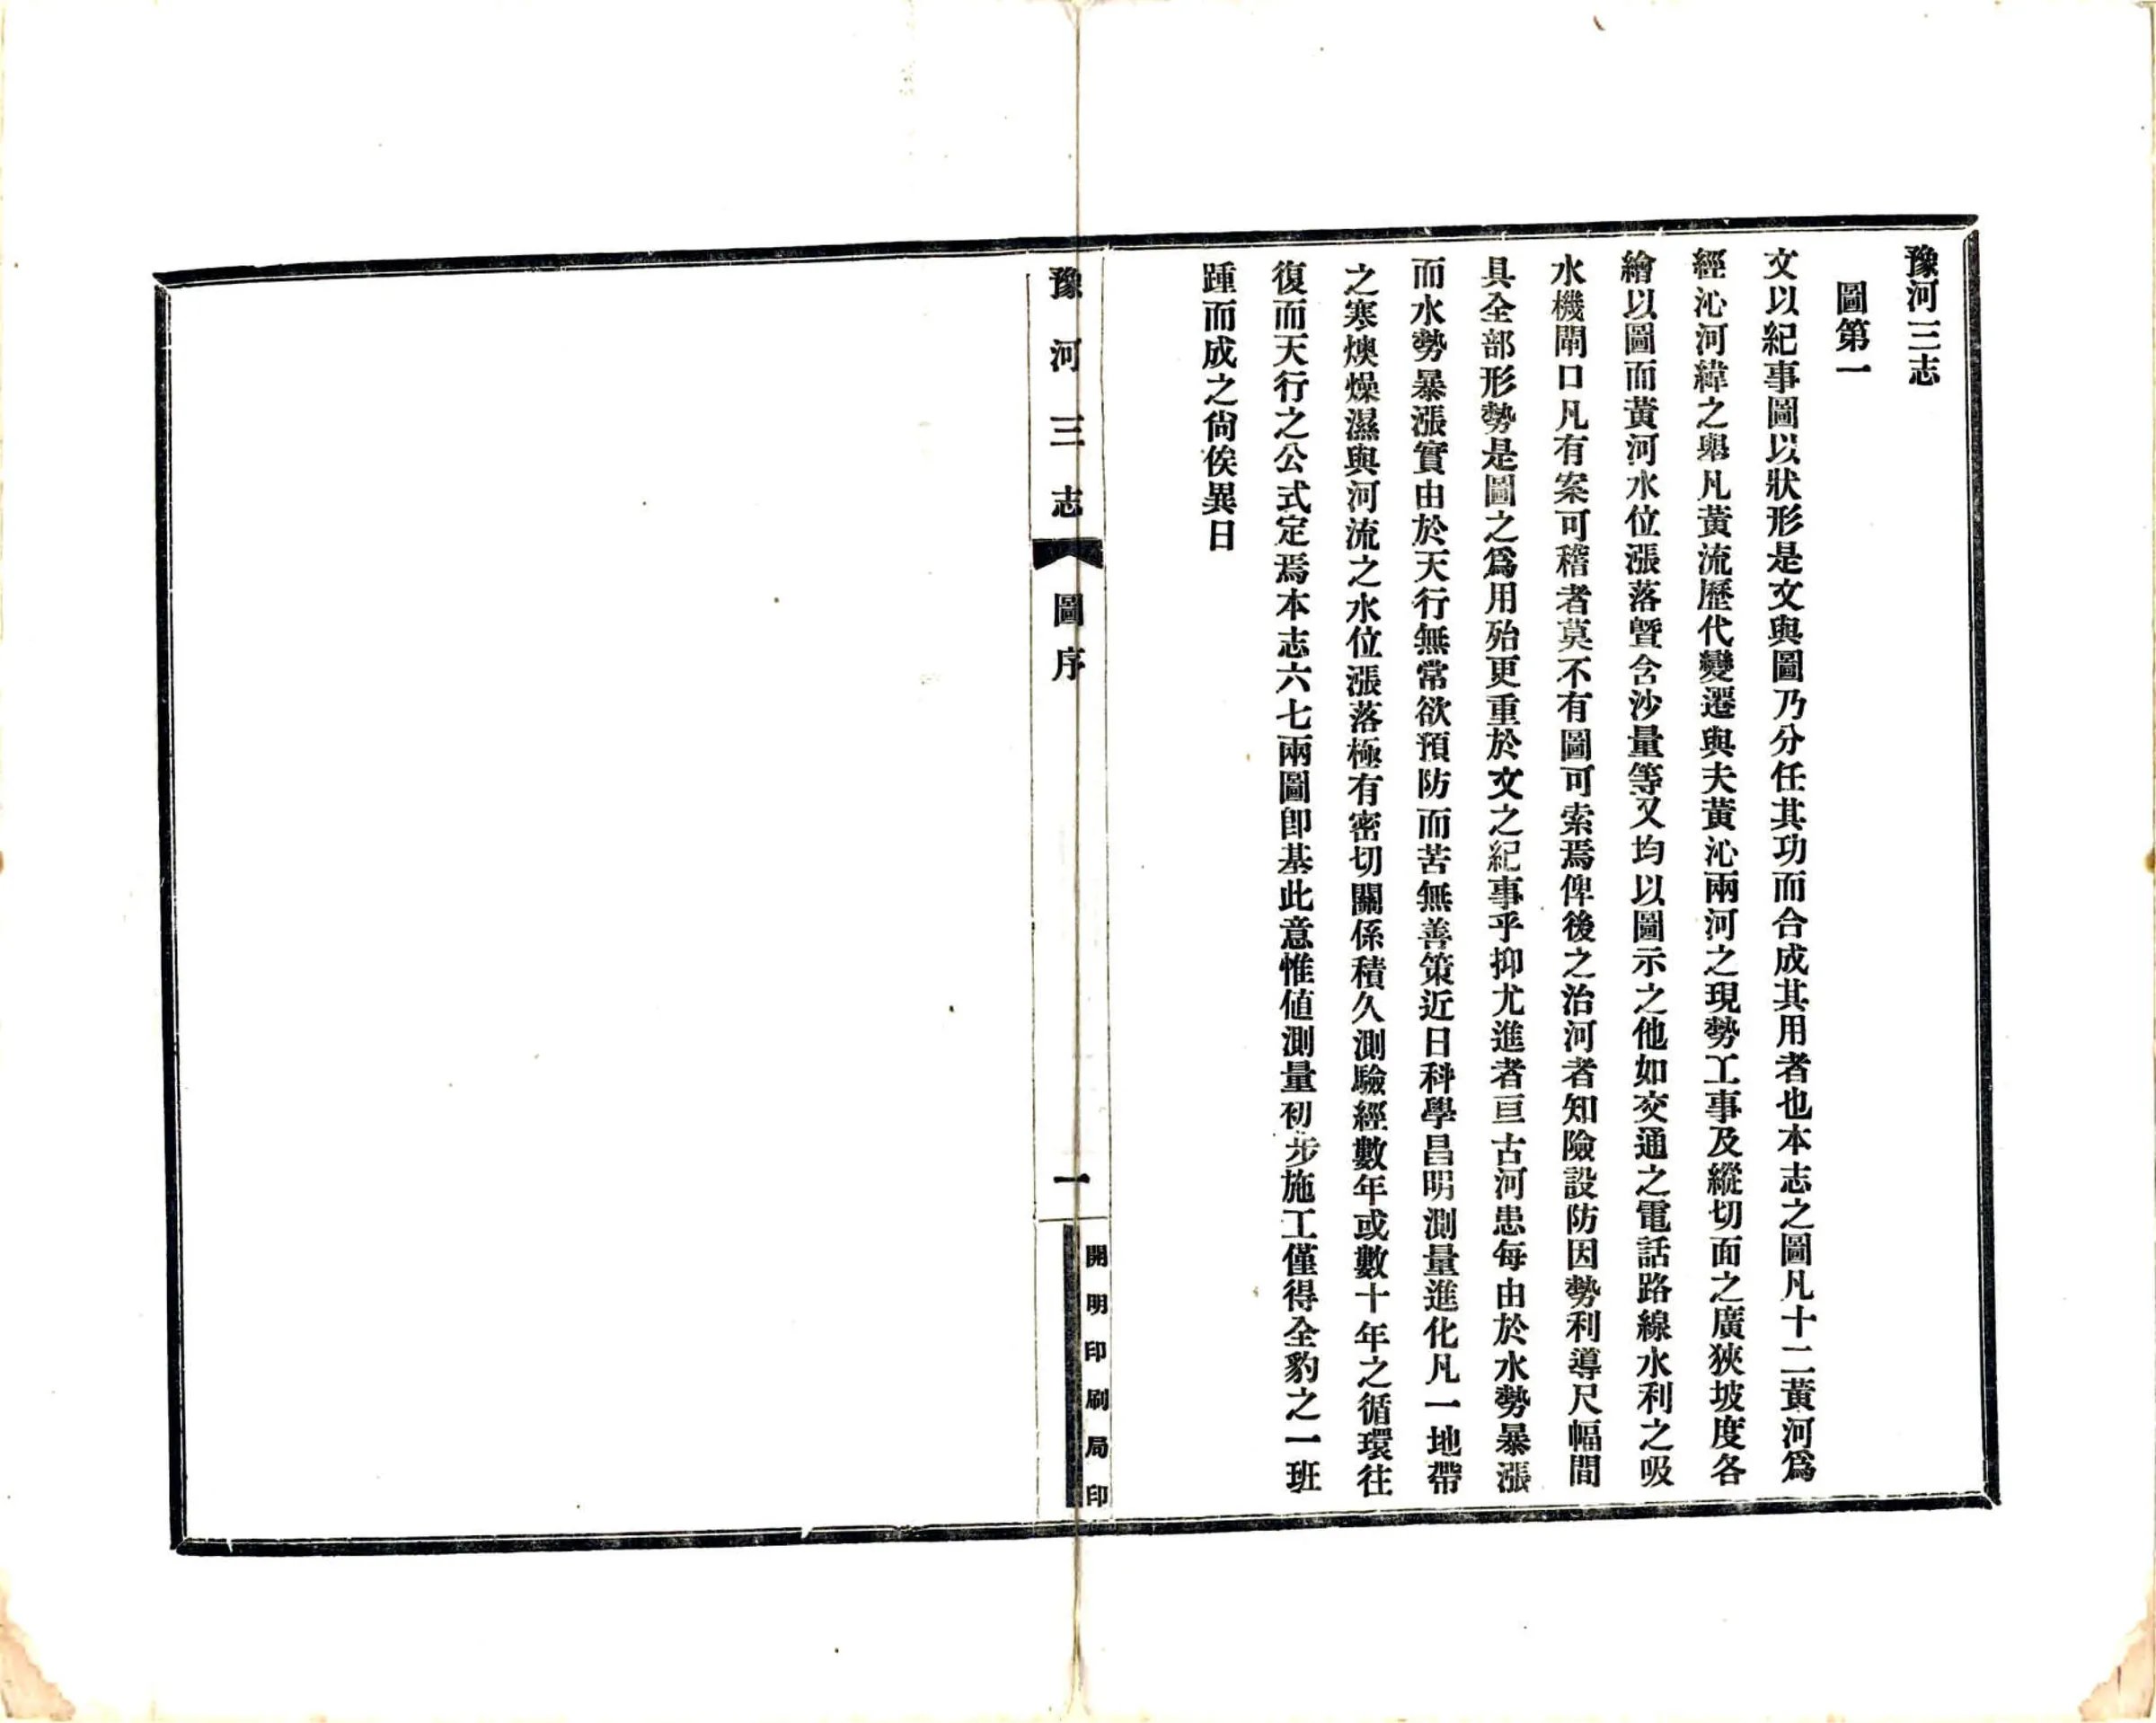 豫河三志
圖第一
文以紀事圖以狀形是文與圖乃分任其功而合成其用者也本志之圖凡十二黃河爲
經沁河緯之舉凡黃流歷代變遷與夫黃沁兩河之現勢工事及縱切面之廣狹坡度各
繪以圖而黃河水位漲落暨含沙量等又均以圖示之他如交通之電話路線水利之吸
水機閘口凡有案可稽者莫不有圖可索焉俾後之治河者知險設防因勢利導尺幅間
具全部形勢是圖之爲用殆更重於文之紀事乎抑尤進者亘古河患每由於水勢暴漲
而水勢暴漲實由於天行無常欲預防而苦無善策近日科學昌明測量進化凡一地帶
之寒燠燥濕與河流之水位漲落極有密切關係積久測驗經數年或數十年之循環往
復而天行之公式定焉本志六七兩圖卽基此意惟値測量初步施工僅得全豹之一班
踵而成之尙俟異日
豫河三志
圖序
一
開明印刷局印